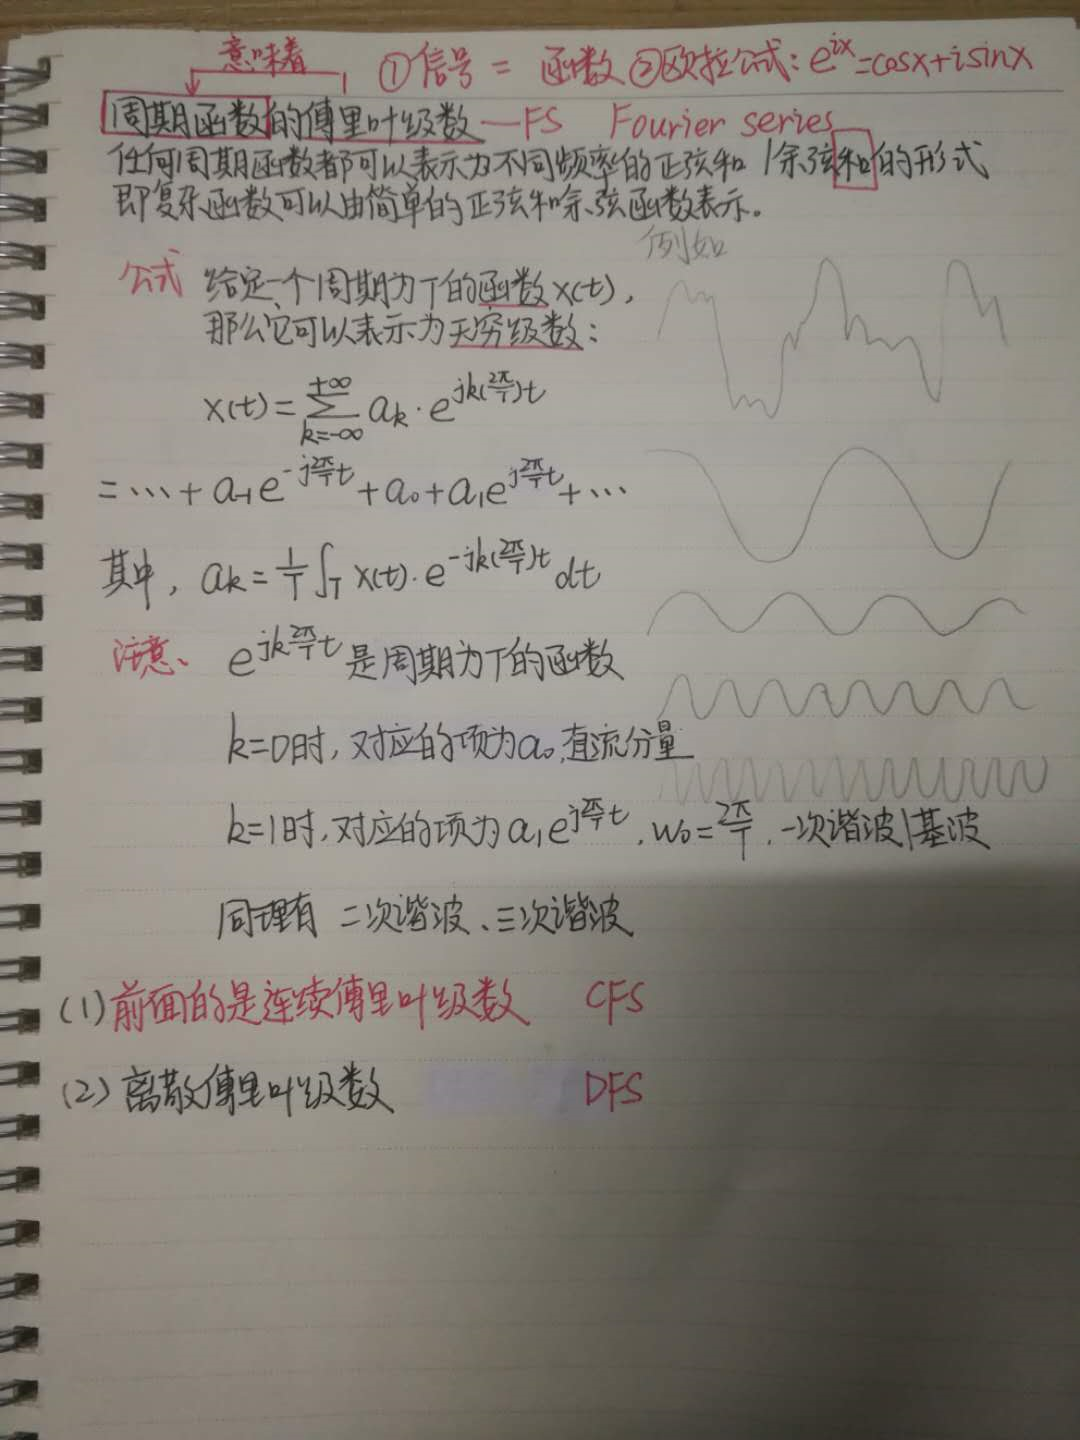 意味着 ①信号 = 函数 ②欧拉公式: e^{ix}=cosx+isinx
周期函数的傅里叶级数 — FS Fourier series
任何周期函数都可以表示为不同频率的正弦和/余弦和的形式
即复杂函数可以由简单的正弦和余弦函数表示。
例如
公式 给定一个周期为T的函数x(t),
那么它可以表示为无穷级数:
x(t) = \sum_{k=-∞}^{+∞} a_k · e^{jk(2π/T)t}
= ⋯ + a_{-1}e^{-j2π/T t} + a_0 + a_1e^{j2π/T t} + ⋯
其中, a_k = 1/T ∫_T x(t)·e^{-jk(2π/T)t} dt
注意、 e^{jk2π/T t} 是周期为T的函数
k=0时, 对应的项为a_0, 直流分量
k=1时, 对应的项为a_1e^{j2π/T t}, w_0=2π/T, 一次谐波|基波
同理有 二次谐波、三次谐波
(1) 前面的是连续傅里叶级数 CFS
(2) 离散傅里叶级数 DFS